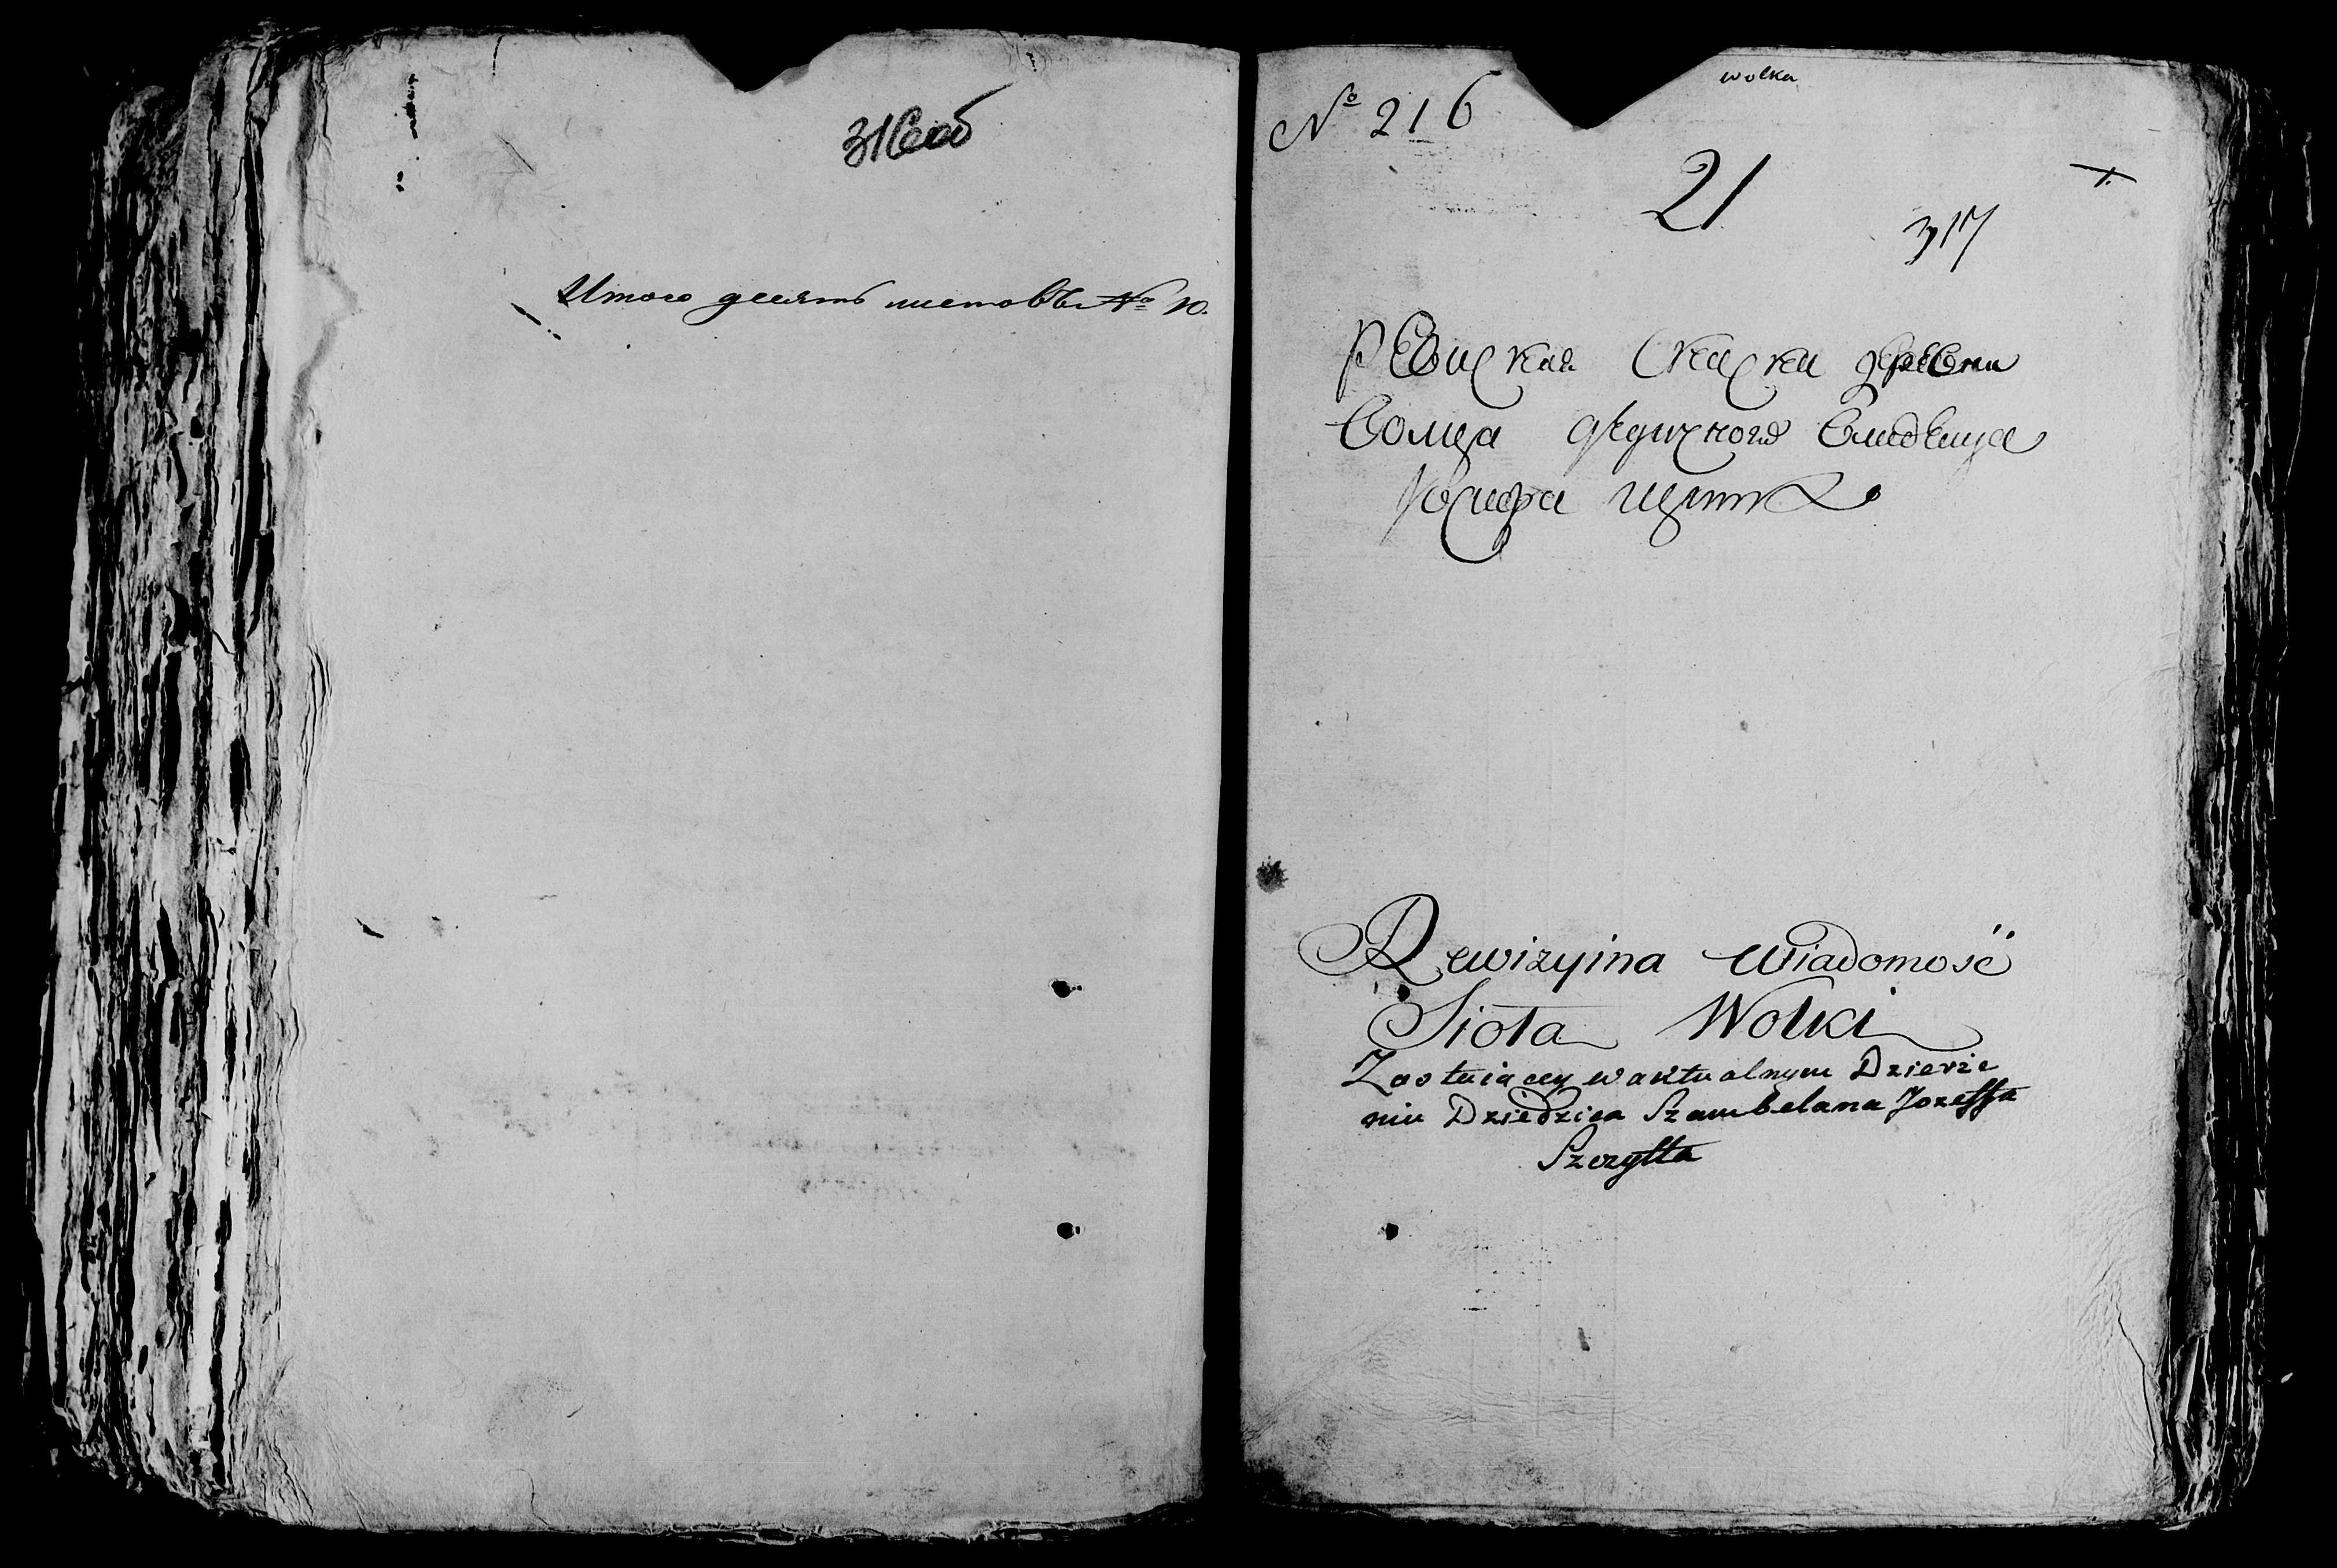 316 об
Итого десять листовъ № 10.
wolka
№ 216
21
1.
317
Ревиская Скаска деревни
Волки дедичного Владельца
Иосифа Щитта
Rewizyina Wiadomość
Sioła Wolki
Zostaiącey w aktualnym Dzierże
niu Dziedzica Szambelana Jozeffa
Szczytta